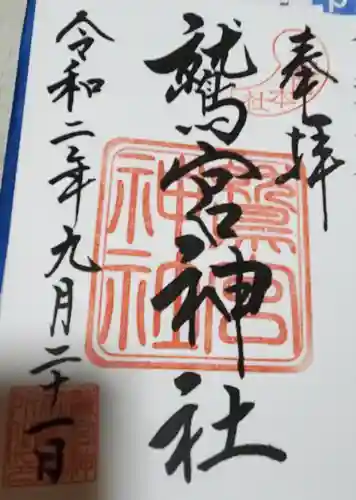 奉拝
鷲宮神社
令和二年九月二十一日
鷲宮
神社